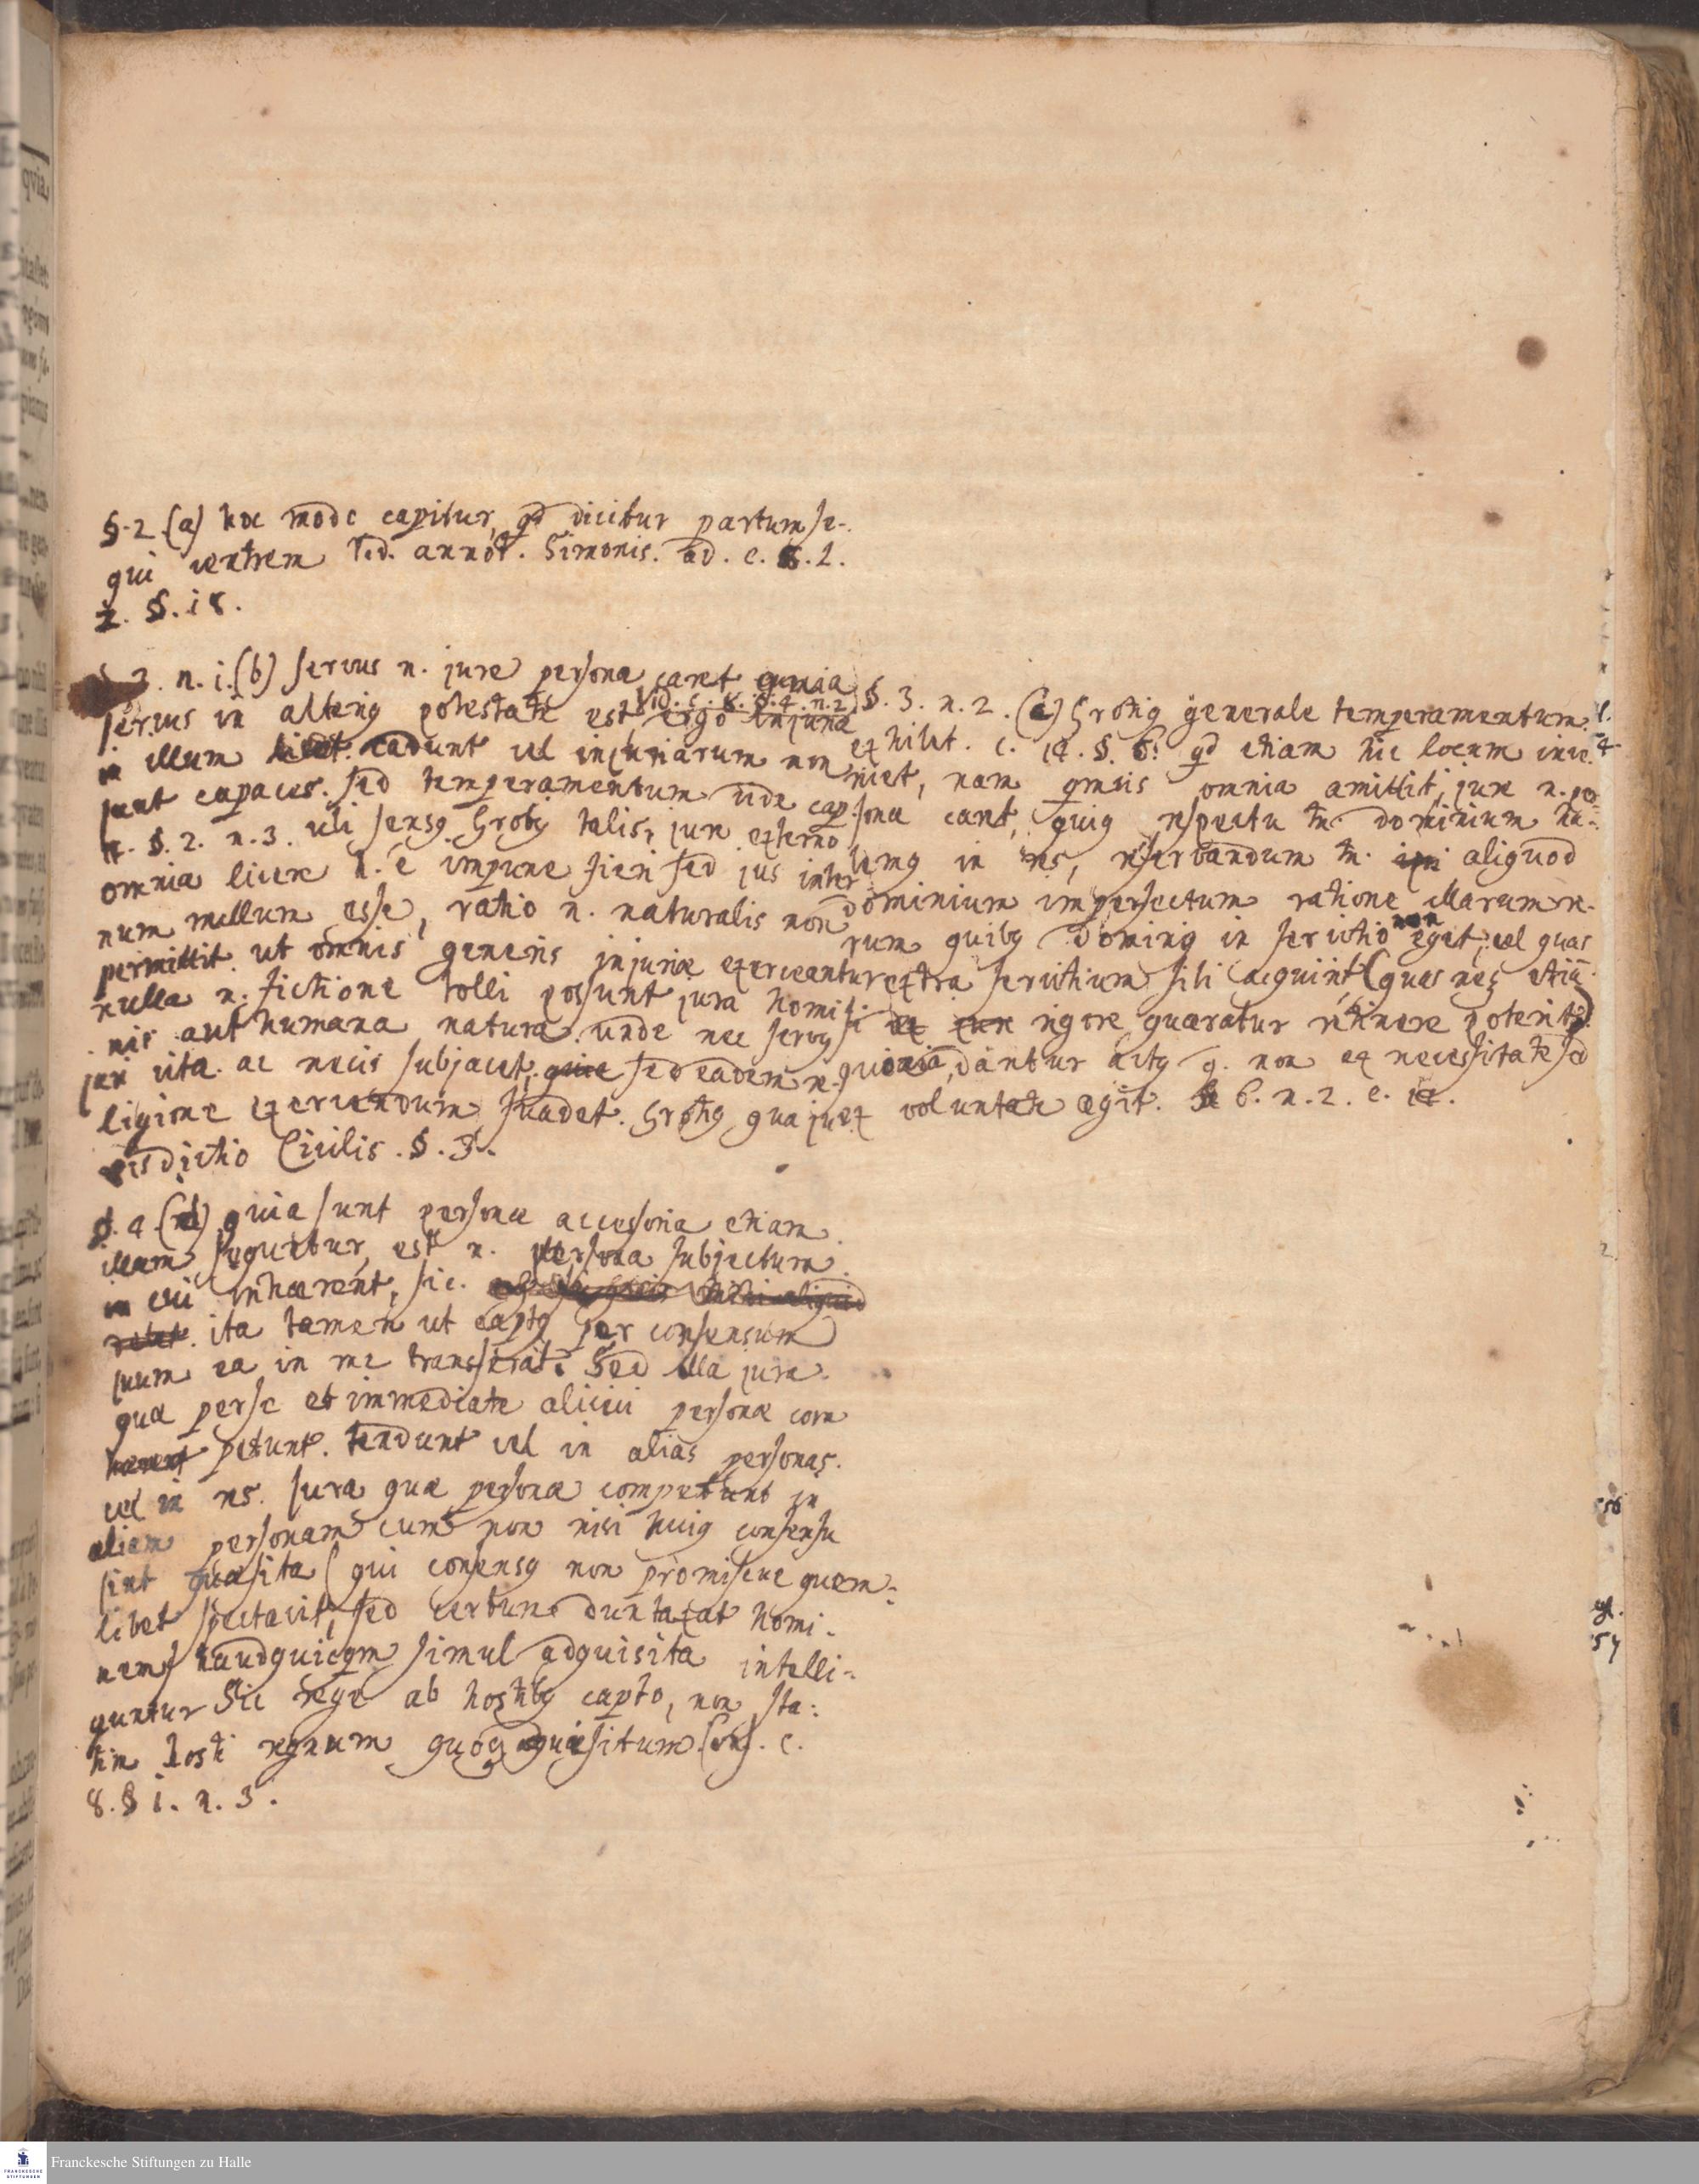 §. 2 (a) hoc modo capitur, qd dicitur partum se-
qui ventrem Vid. annot. Simonis. ad. c. 2.
2. §. 18.
3. n. i. (b) servus n. jure personæ caret omnia
servus in alterig potestate est, ergo injuria
Vid. c. 8. §. 4. n. 2
in illum cadunt vel injuriarum non
sunt capaces. sed temperamentum vide cap.
14. §. 2. n. 3. ubi sensg Grotij talis, jure externo
omnia licere h. e impune fieri sed jus inter
num nullum esse, ratio n. naturalis non
permittit ut omnis generis injuriæ exerceantur
nulla n. fictione tolli possunt jura homi
nis aut humana natura. unde nec servg
juri vitæ ac necis subjacet, sed eadem re-
ligione exercendum suadet. Grotig qua ju
risdictio Civilis. §. 3.
§. 3. n. 2. (c) Grotig generale temperamentum
exhibet. c. 14. §. 6. qd etiam hic locum inve
niet, nam omnia amittit, jure n. per
sonæ caret, quig respectu tn. dominium ha-
bemg in res, reservandum tn. aliquod
dominium imperfectum ratione illarum re-
rum quibg doming in servitio non eget, vel quas
extra servitium sibi acquirit (quas neq etiã
si rigore quæratur retinere poterit)
quoniã, dantur actg q. non ex necessitate sed
ex voluntate egit. 6. n. 2. c. 14.
§. 4 (d) quia sunt personæ accessoria etiam
illam sequuntur, est n. persona subjectum
in cui inhærent, sic.
ita tamen ut captg per consensum
suum ea in me transferat. Sed illa jura
quæ per se et immediate alicui personæ com
petunt. tendunt vel in alias personas.
vel in res. Jura quæ personæ competunt in
aliam personam cum non nisi huig consensu
sint quæsita (qui consensg non promiscue quem-
libet spectavit, sed certum duntaxat homi-
nem) haudquicqm simul adquisita intelli-
guntur Sic rege ab hostibg capto, non sta-
tim hosti regnum quoq quæsitum. c.
8. § i. n. 3.
Franckesche Stiftungen zu Halle